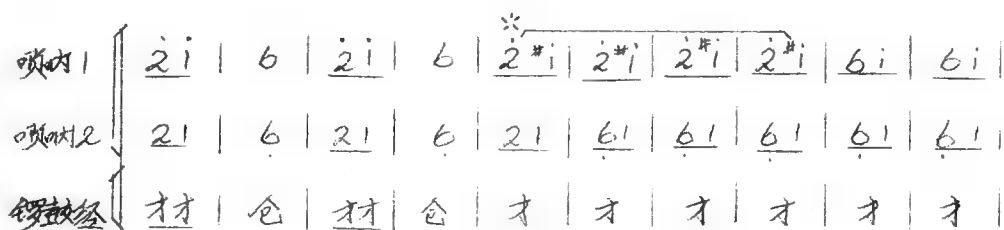 ※
唢呐1 2̇ i̇ | 6 | 2̇ i̇ | 6 | 2̇ #i̇ | 2̇ #i̇ | 2̇ #i̇ | 2̇ #i̇ | 6 i̇ | 6 i̇ |
唢呐2 2 1 | 6̣ | 2 1 | 6̣ | 2 1 | 6̣ 1 | 6̣ 1 | 6̣ 1 | 6̣ 1 | 6̣ 1 |
锣鼓经 才才 | 仓 | 才才 | 仓 | 才 | 才 | 才 | 才 | 才 | 才 |